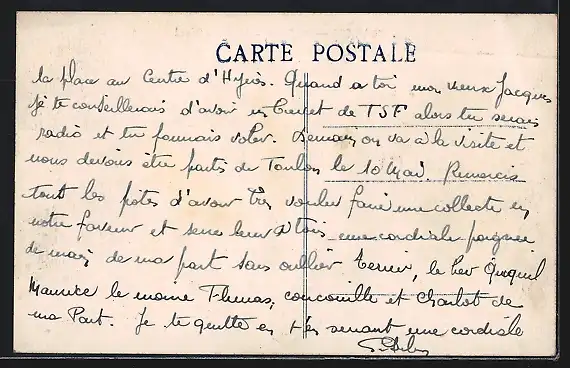 CARTE POSTALE
la place au Centre d'Hyères. Quand a toi mon vieux Jacques
je te conseillerais d'avoir un Brevet de TSF alors tu serais
radio et tu pourrais voler. Demain on va à la visite et
nous devons être partis de Toulon le 10 Mai. Remercie
tout les potes d'avoir bien voulu faire une collecte en
notre faveur et serre leur à tois une cordiale poignée
de main de ma part sans oublier Terrier, le
Maurice le moine Thomas, et Charlot de
ma Part. Je te quitte en t'en serrant une cordiale